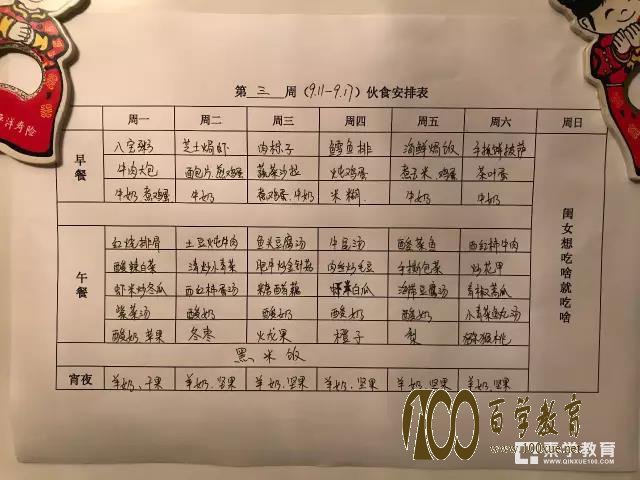 第 三 周（9.11-9.17）伙食安排表
周一 周二 周三 周四 周五 周六 周日
早餐
八宝粥 芝士焗虾 肉粽子 鳕鱼排 海鲜焗饭 手抓饼披萨
牛肉大包 面包片,煎鸡蛋 蔬菜沙拉 炖鸡蛋 煮玉米,鸡蛋 茶叶蛋
牛奶,煮鸡蛋 牛奶 煮鸡蛋,牛奶 米糊. 牛奶 牛奶
闺女想吃啥就吃啥
午餐
红烧排骨 土豆炖牛肉 鱼头豆腐汤 牛尾汤 酸菜鱼 西红柿牛肉
酸辣白菜 清炒小青菜 肥牛炒金针菇 肉丝炒毛豆 手撕包菜 炒花甲
虾米炒冬瓜 西红柿蛋汤 糖醋藕 虾米白瓜 海鲜豆腐汤 青椒黄瓜
紫菜汤 酸奶 酸奶 酸奶 酸奶 小青菜鱼丸汤
酸奶 苹果 冬枣 火龙果 橙子 梨 猕猴桃
黑米饭
宵夜 羊奶、干果 羊奶,坚果 羊奶.坚果 羊奶.坚果 羊奶,坚果 羊奶.坚果
平洋寿险
100百学教育
www.100xue.net
秦学教育
WWW.QINXUE100.COM